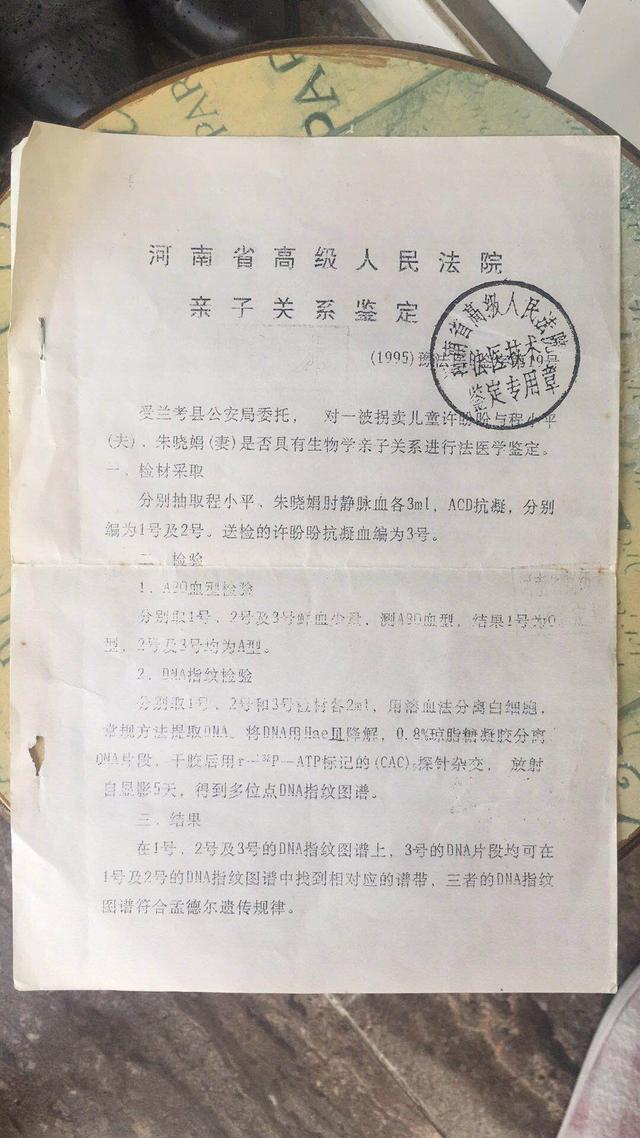 河南省高级人民法院
亲子关系鉴定
河南省高级人民法院
法医技术
鉴定专用章
(1995)豫法医 第19号
受兰考县公安局委托， 对一被拐卖儿童许盼盼与程小平
(夫)、朱晓娟(妻)是否具有生物学亲子关系进行法医学鉴定。
一、检材采取
分别抽取程小平、朱晓娟肘静脉血各3ml，ACD抗凝，分别
编为1号及2号。送检的许盼盼抗凝血编为3号。
二 检验
1．ABO血型检验
分别取1号、2号及3号鲜血少量，测ABO血型，结果1号为O
型，2号及3号均为A型。
2．DNA指纹检验
分别取1号、2号和3号检材各2ml，用溶血法分离白细胞，
常规方法提取DNA。将DNA用HaeⅢ降解，0.8%琼脂糖凝胶分离
DNA片段，干胶后用r-³²P-ATP标记的(CAC) 探针杂交， 放射
自显影5天，得到多位点DNA指纹图谱。
三．结果
在1号、2号及3号的DNA指纹图谱上，3号的DNA片段均可在
1号及2号的DNA指纹图谱中找到相对应的谱带，三者的DNA指纹
图谱符合孟德尔遗传规律。